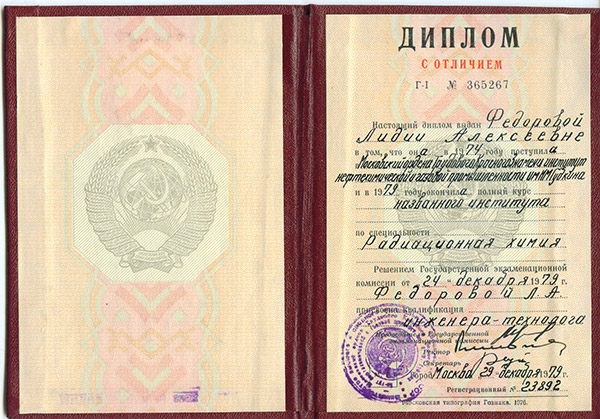 ДИПЛОМ
С ОТЛИЧИЕМ
Г-I № 365267
Настоящий диплом выдан Федоровой
Лидии Алексеевне
в том, что она в 1974 году поступила
Московский ордена Трудового Красного Знамени институт
нефтехимической и газовой промышленности им. И.М. Губкина
и в 1979 году окончила полный курс
названного института
по специальности
Радиационная химия
Решением Государственной экзаменационной
комиссии от 24 декабря 1979 г.
Федоровой Л.А.
присвоена квалификация
инженера-технолога
Председатель Государственной
экзаменационной комиссии
Ректор
Секретарь
Город Москва 29 декабря 1979 г.
Регистрационный № 23892
Московская типография Гознака. 1976.